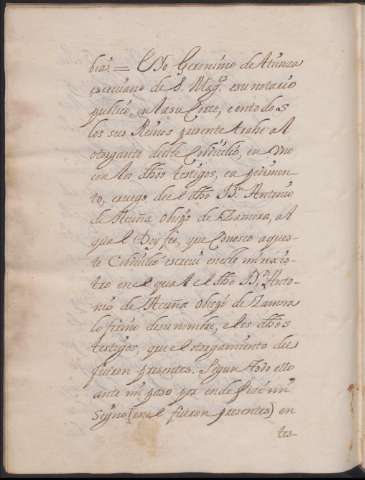 bia = E Yo Geronimo de Atiença
escriuano de S. Magᵈ. e su notario
publico, en la su Corte, e en todos
los sus Reinos presente stube al
otorgante deste Codicilio, en uno
con los dhos testigos, e a pedimen-
to, e ruego del dho D. Antonio
de Acuña obispo de Zamora, al
qual Doy fee, que Conosco aques-
te Codicilio escreui en de mi rexis-
tro en el qual el dho D. Anto-
nio de Acuña obispo de Zamora
lo firmo de su nombre, e los dhos
testigos, que al otorgamiento del
fueron presentes. Segun todo esto
ante mi paso por ende fise mi
Signo (en el fueron presentes) en
tes-